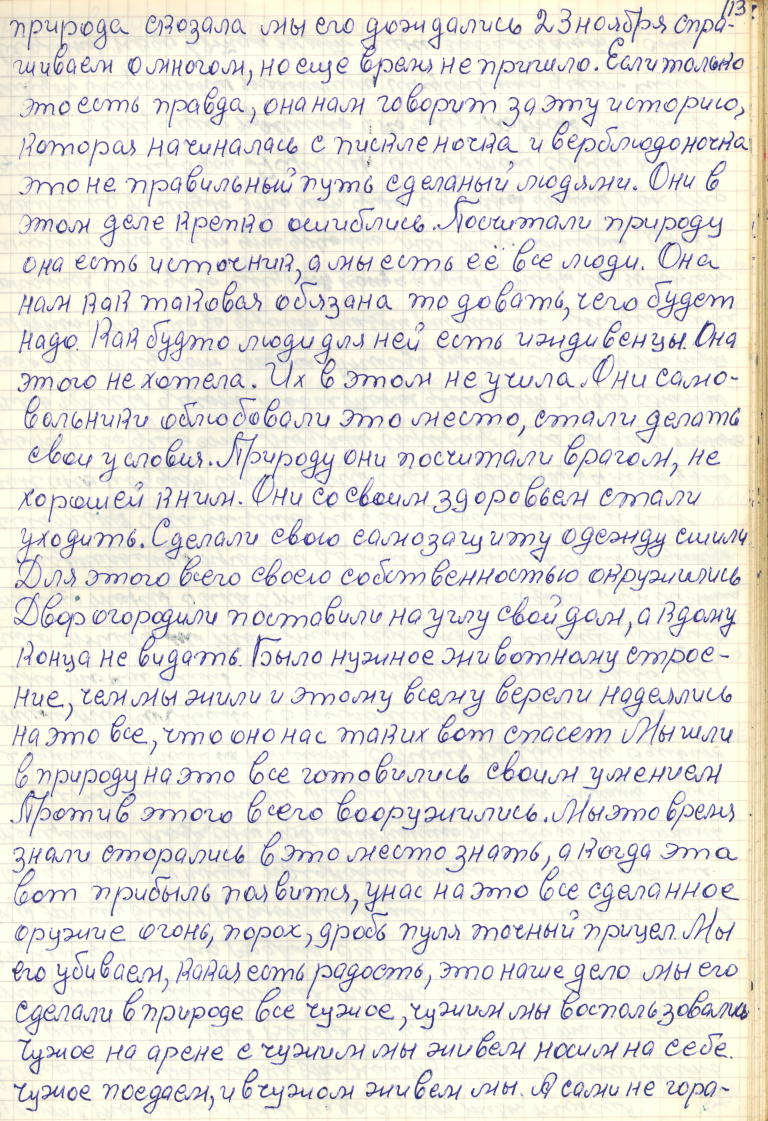 13.
природа сказала мы его дождались 23 ноября спра-
шиваем о многом, но еще время не пришло. Если только
это есть правда, она нам говорит за эту историю,
которая начиналась с пискленочка и верблюдоночка
это не правильный путь сделаный людями. Они в
этом деле крепко ошиблись. Посчитали природу
она есть источник, а мы есть её все люди. Она
нам как таковая обязана то довать, чего будет
надо. Как будто люди для ней есть иждивенцы. Она
этого не хотела. Их в этом не учила. Они само-
вольники облюбовали это место, стали делать
свои условия. Природу они посчитали врагом, не
хорошей к ним. Они со своим здоровьем стали
уходить. Сделали свою самозащиту одежду сшили
Для этого всего своею собственностью окружились
Двор огородили поставили на углу свой дом, а к дому
конца не видать. Было нужное животному строе-
ние, чем мы жили и этому всему верели надеялись
на это все, что оно нас таких вот спасет Мы шли
в природу на это все готовились своим умением
Против этого всего вооружились. Мы это время
знали сторались в это место знать, а когда эта
вот прибыль появится, у нас на это все сделанное
оружие огонь, порох, дробь пуля точный прицел. Мы
его убиваем, какая есть радость, это наше дело мы его
сделали в природе все чужое, чужим мы воспользовались
Чужое на арене с чужим мы живем носим на себе.
чужое поедаем, и в чужом живем мы. А сами не гора-